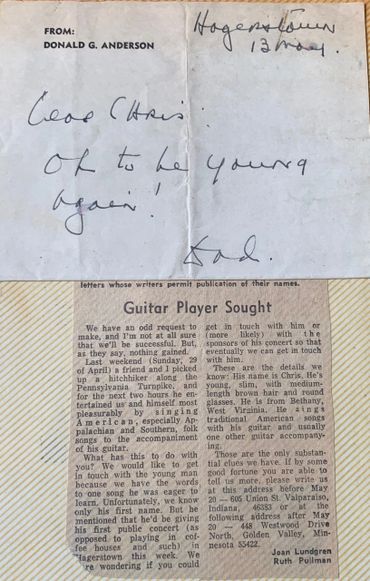 FROM:
DONALD G. ANDERSON
Hagerstown
13 May.
Dear Chris:
Oh to be young
again!
Dad.
letters whose writers permit publication of their names.
Guitar Player Sought
We have an odd request to
make, and I'm not at all sure
that we'll be successful. But,
as they say, nothing gained.
Last weekend (Sunday, 29
of April) a friend and I picked
up a hitchhiker along the
Pennsylvania Turnpike, and
for the next two hours he en-
tertained us and himself most
pleasurably by singing
American, especially Ap-
palachian and Southern, folk
songs to the accompaniment
of his guitar.
What has this to do with
you? We would like to get
in touch with the young man
because we have the words
to one song he was eager to
learn. Unfortunately, we know
only his first name. But he
mentioned that he'd be giving
his first public concert (as
opposed to playing in cof-
fee houses and such) in
Hagerstown this week. We
re wondering if you could
get in touch with him or
(more likely) with the
sponsors of his concert so that
eventually we can get in touch
with him.
These are the details we
know: His name is Chris, He's
young, slim, with medium-
length brown hair and round
glasses. He is from Bethany,
West Virginia. He sings
traditional American songs
with his guitar and usually
one other guitar accompany-
ing.
Those are the only substan-
tial clues we have. If by some
good fortune you are able to
tell us more, please write us
at this address before May
20 — 605 Union St. Valparaiso,
Indiana, 46383 or at the
following address after May
20 — 448 Westwood Drive
North, Golden Valley, Min-
nesota 55422.
Joan Lundgren
Ruth Pullman